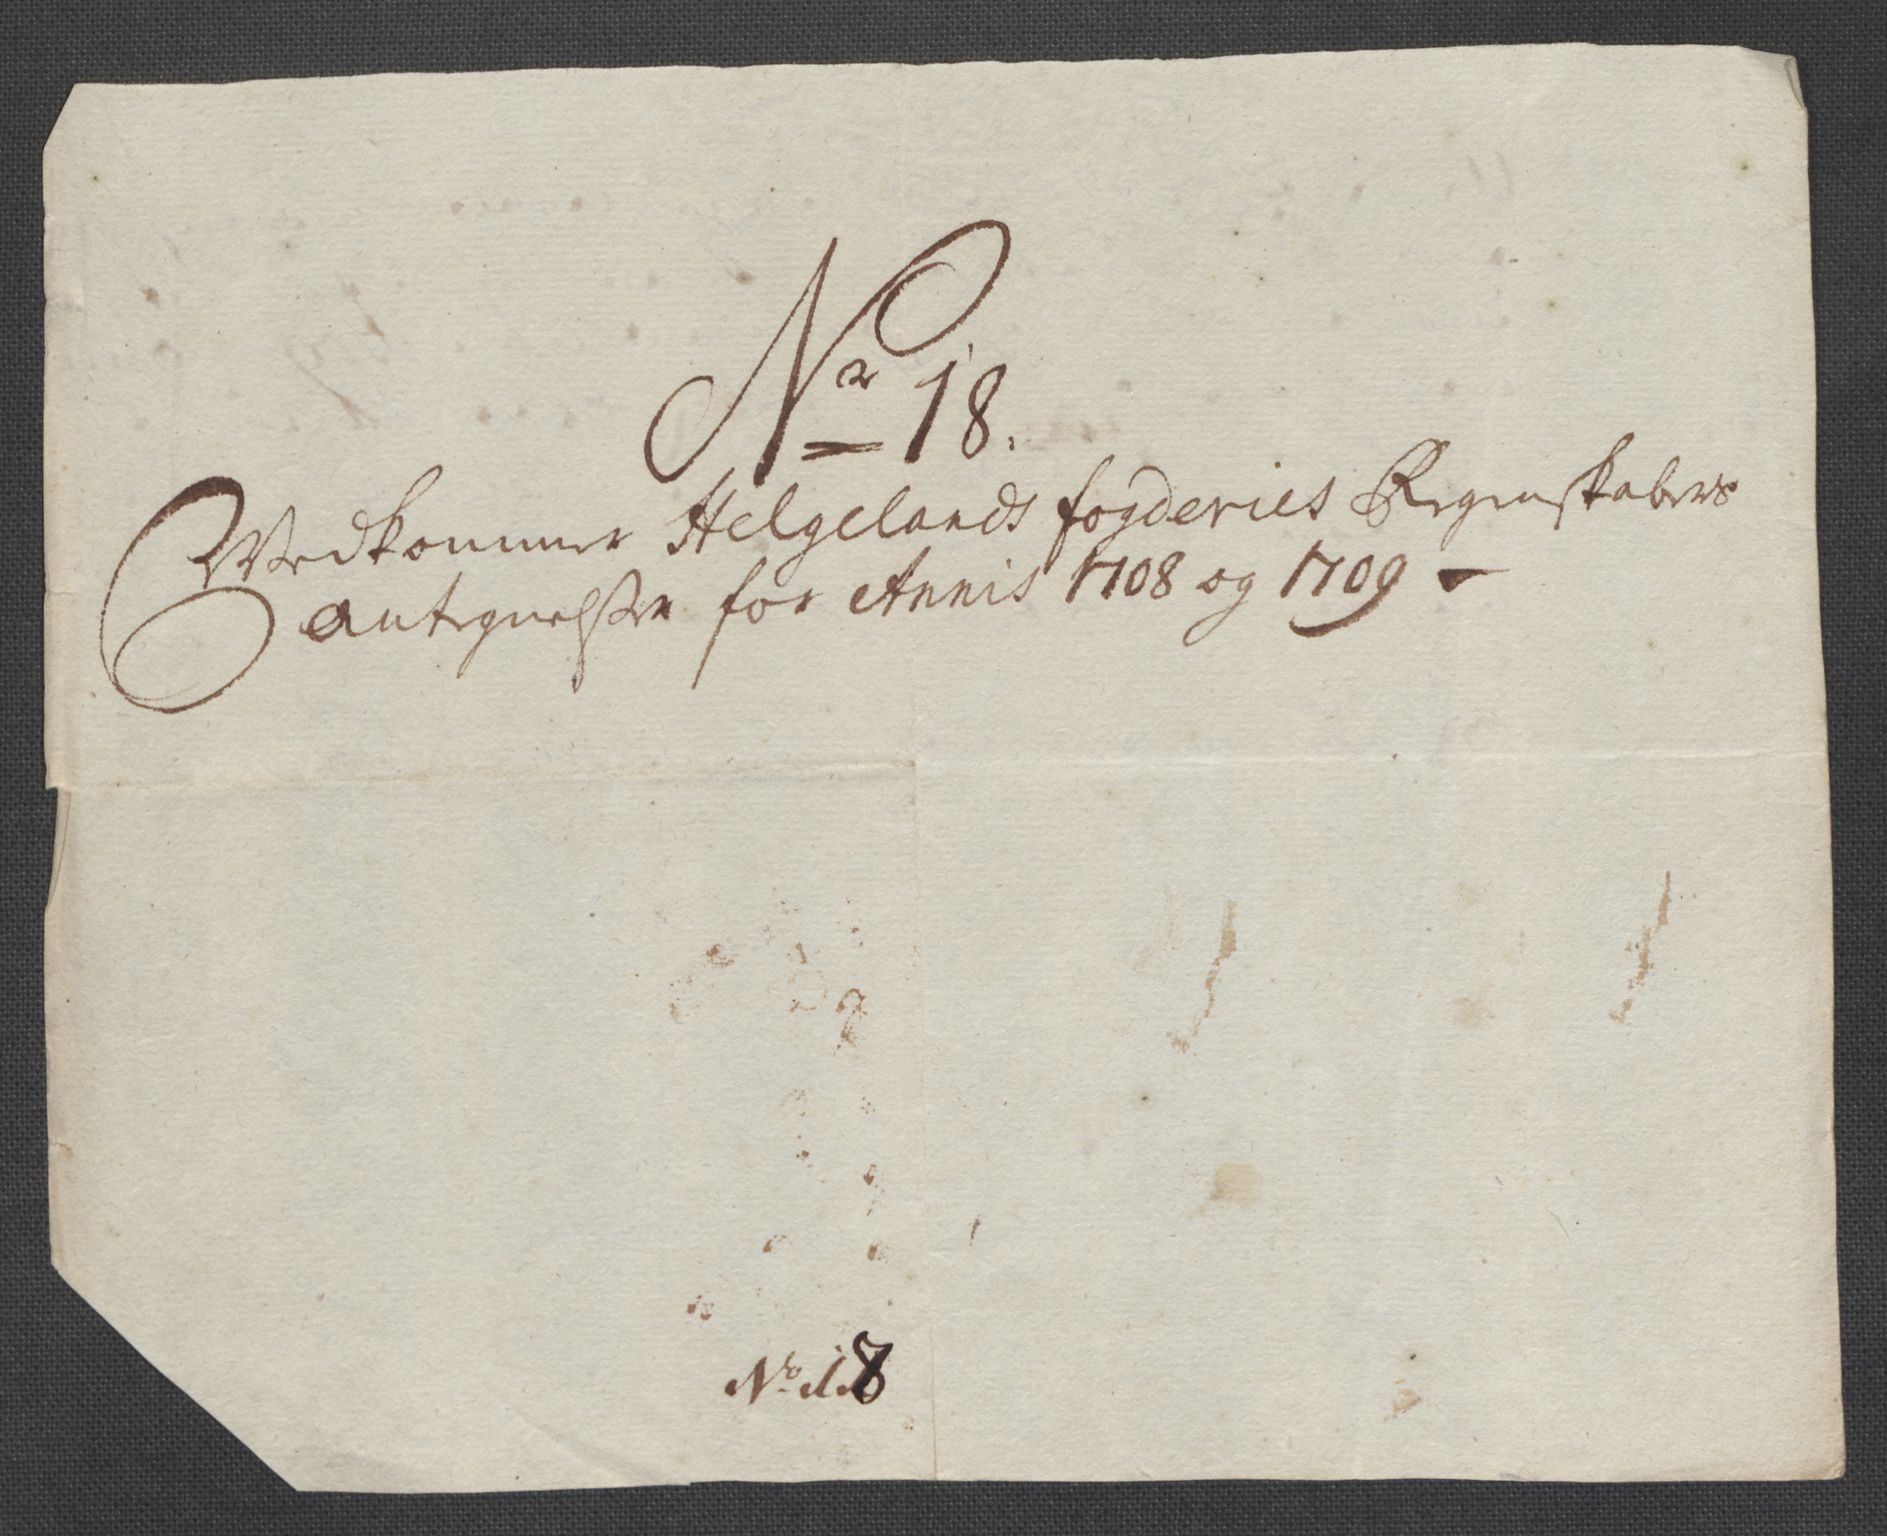 Nr 18.
Vedkommer Helgelands fogderies Regenskabers
Antegnelser for Annis 1708 og 1709 -
No. 18